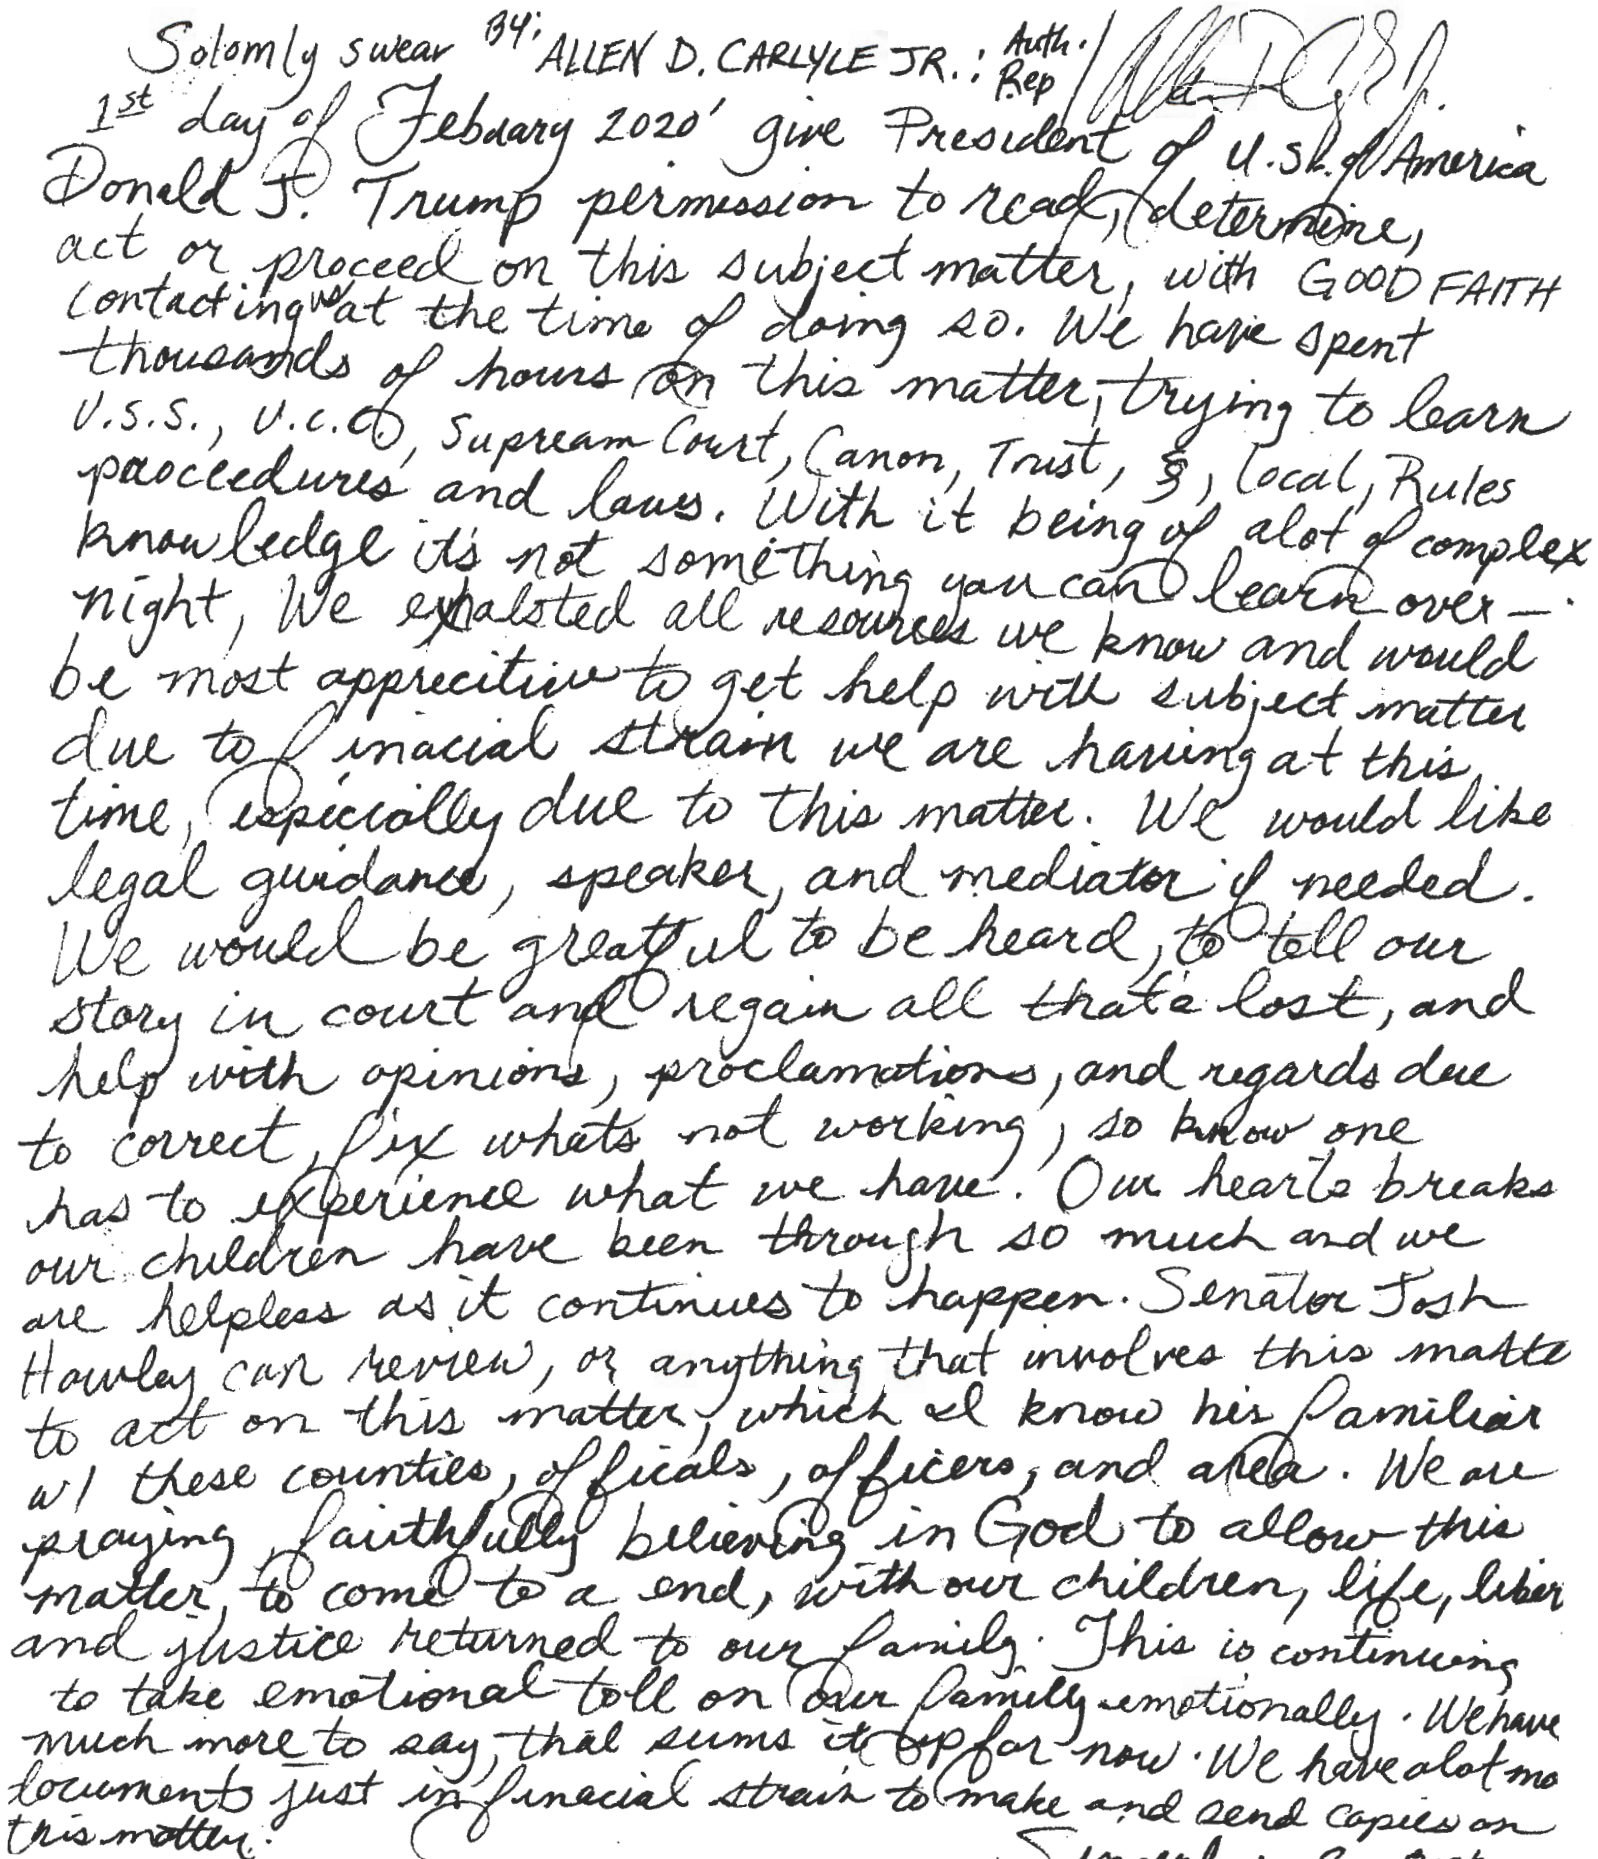 Solomly swear By: ALLEN D. CARLYLE JR.: Auth. Rep /
1st day of Febuary 2020' give President of U.S. of America
Donald J. Trump permission to read, determine,
act or proceed on this subject matter, with GOOD FAITH
contacting us at the time of doing so. We have spent
thousands of hours on this matter, trying to learn
U.S.S., U.C.C., Supream Court, Canon, Trust, §, local, Rules
proceedures and laws. With it being of alot of complex
knowledge it's not something you can learn over-
night, We exhalsted all resources we know and would
be most apprecitive to get help with subject matter
due to finacial strain we are having at this
time, especially due to this matter. We would like
legal guidance, speaker, and mediator if needed.
We would be greatful to be heard, to tell our
story in court and regain all that's lost, and
help with opinions, proclamations, and regards due
to correct, fix whats not working, so know one
has to experience what we have. Our hearts breaks
our children have been through so much and we
are helpless as it continues to happen. Senator Josh
Hawley can review, or anything that involves this matte
to act on this matter, which I know his familiar
w/ these counties, officals, officers, and area. We are
praying, faithfully believing in God to allow this
matter, to come to a end, with our children, life, liber
and justice returned to our family. This is continuing
to take emotional toll on our family emotionally. We have
much more to say, that sums it up for now. We have alot mo
documents just in finacial strain to make and send copies on
this matter.